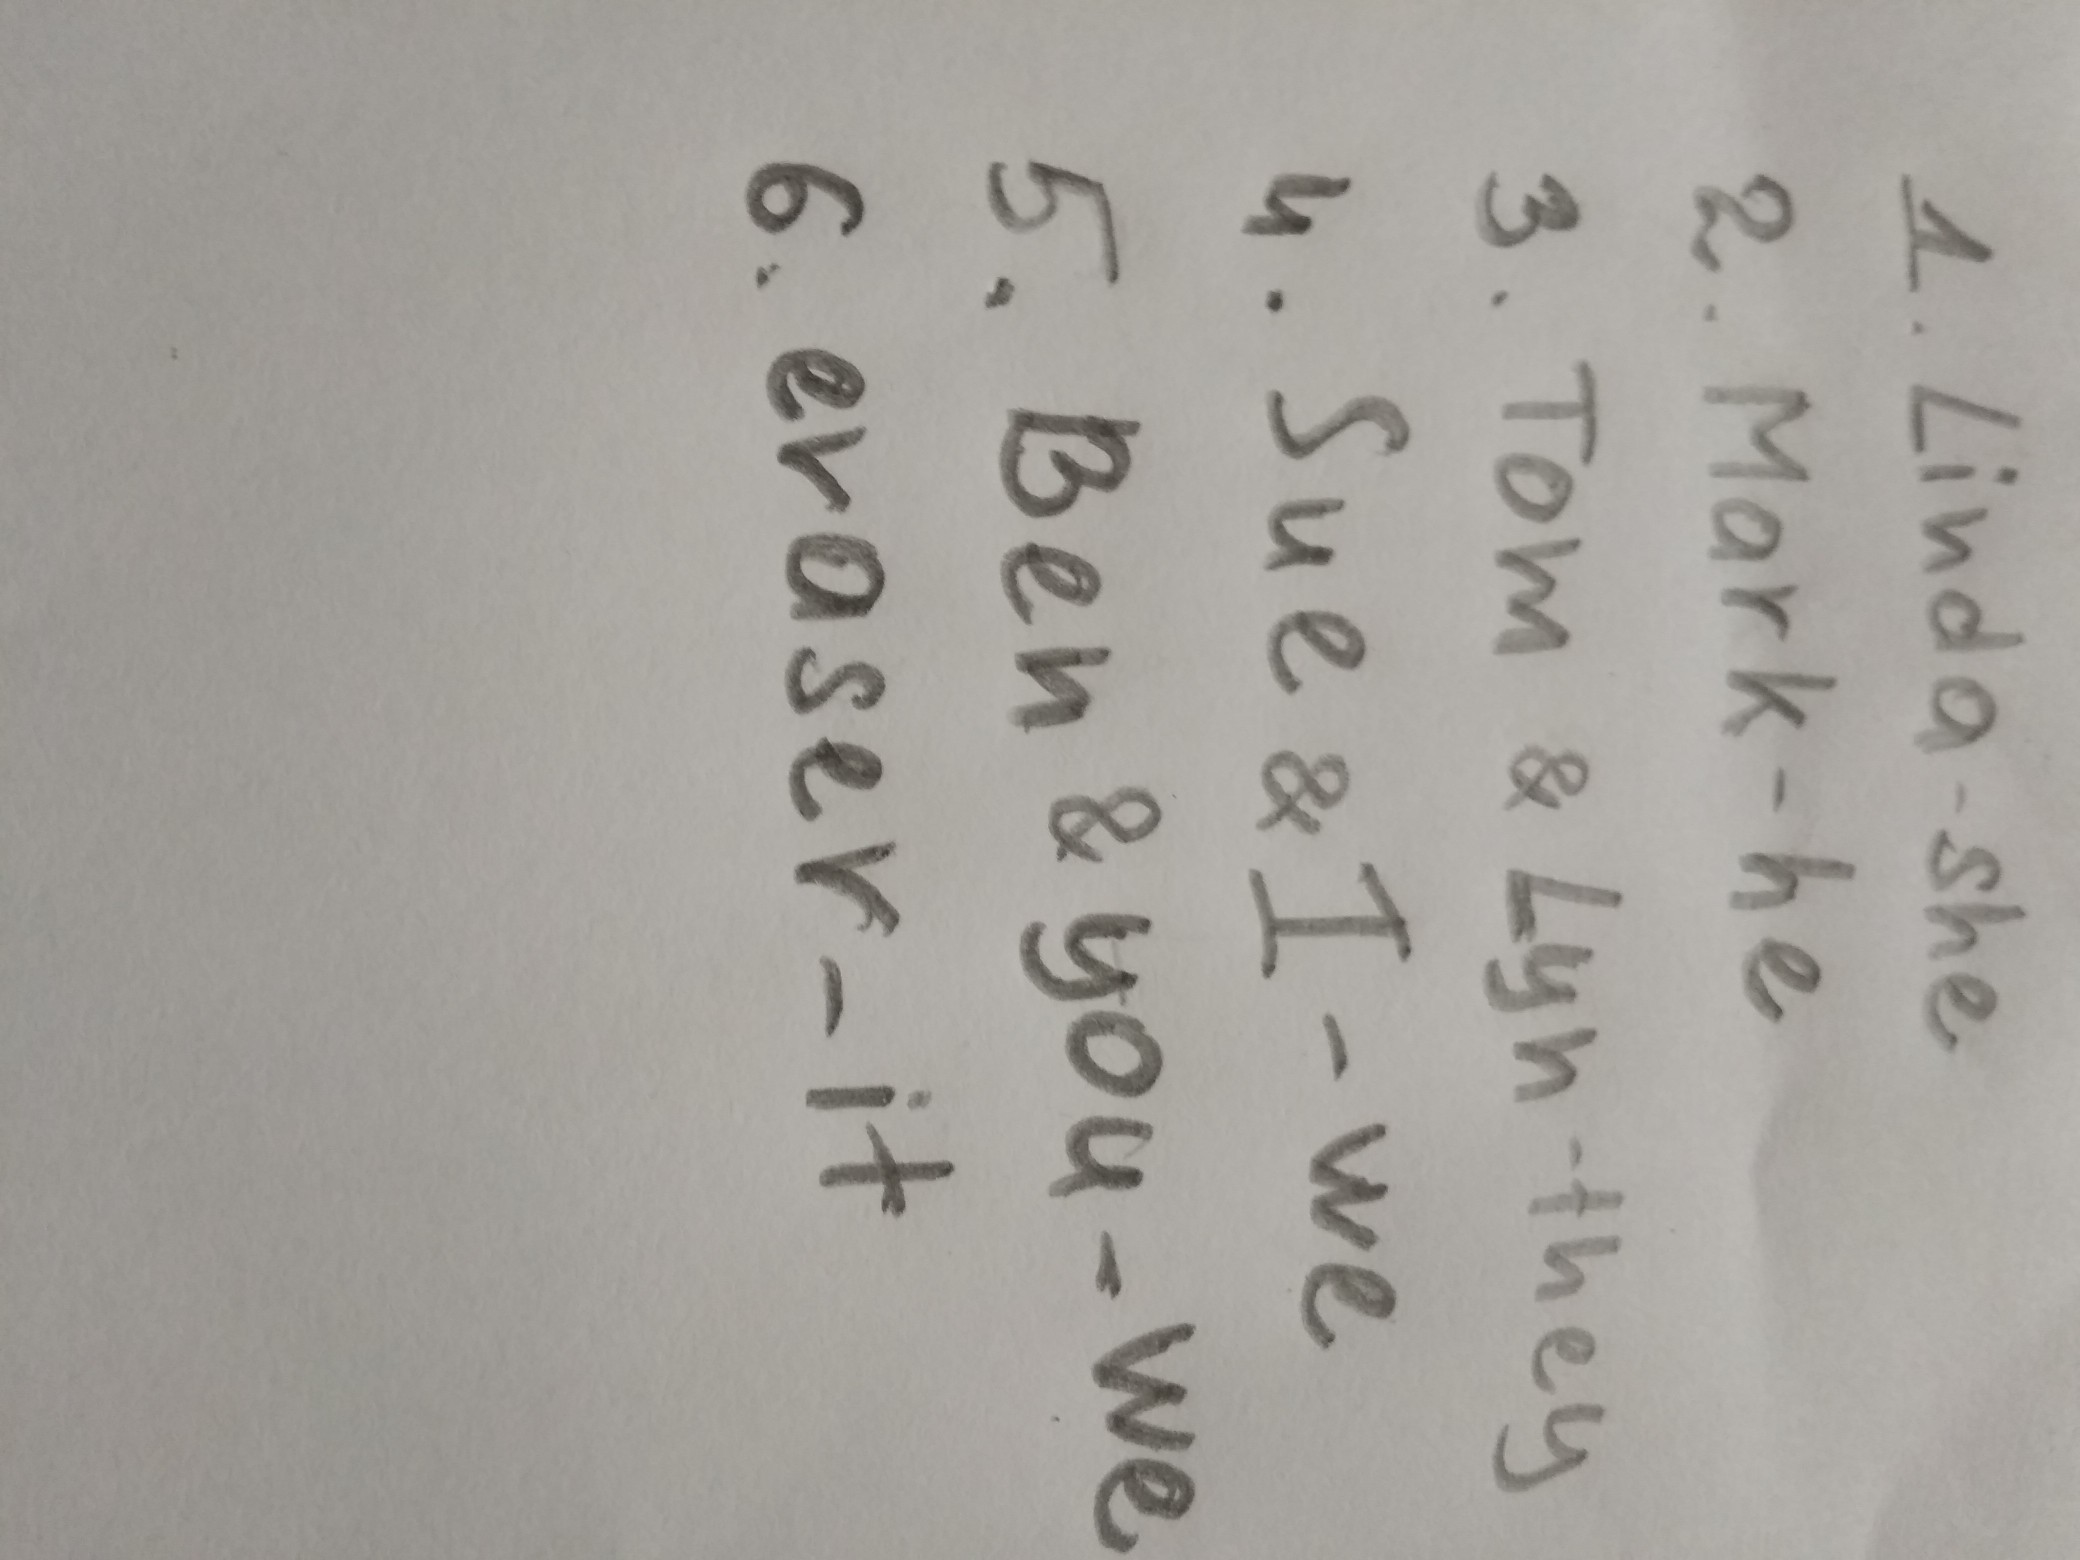 1. Linda-she
2. Mark-he
3. Tom & Lyn-they
4. Sue & I-we
5. Ben & you-we
6. eraser-it